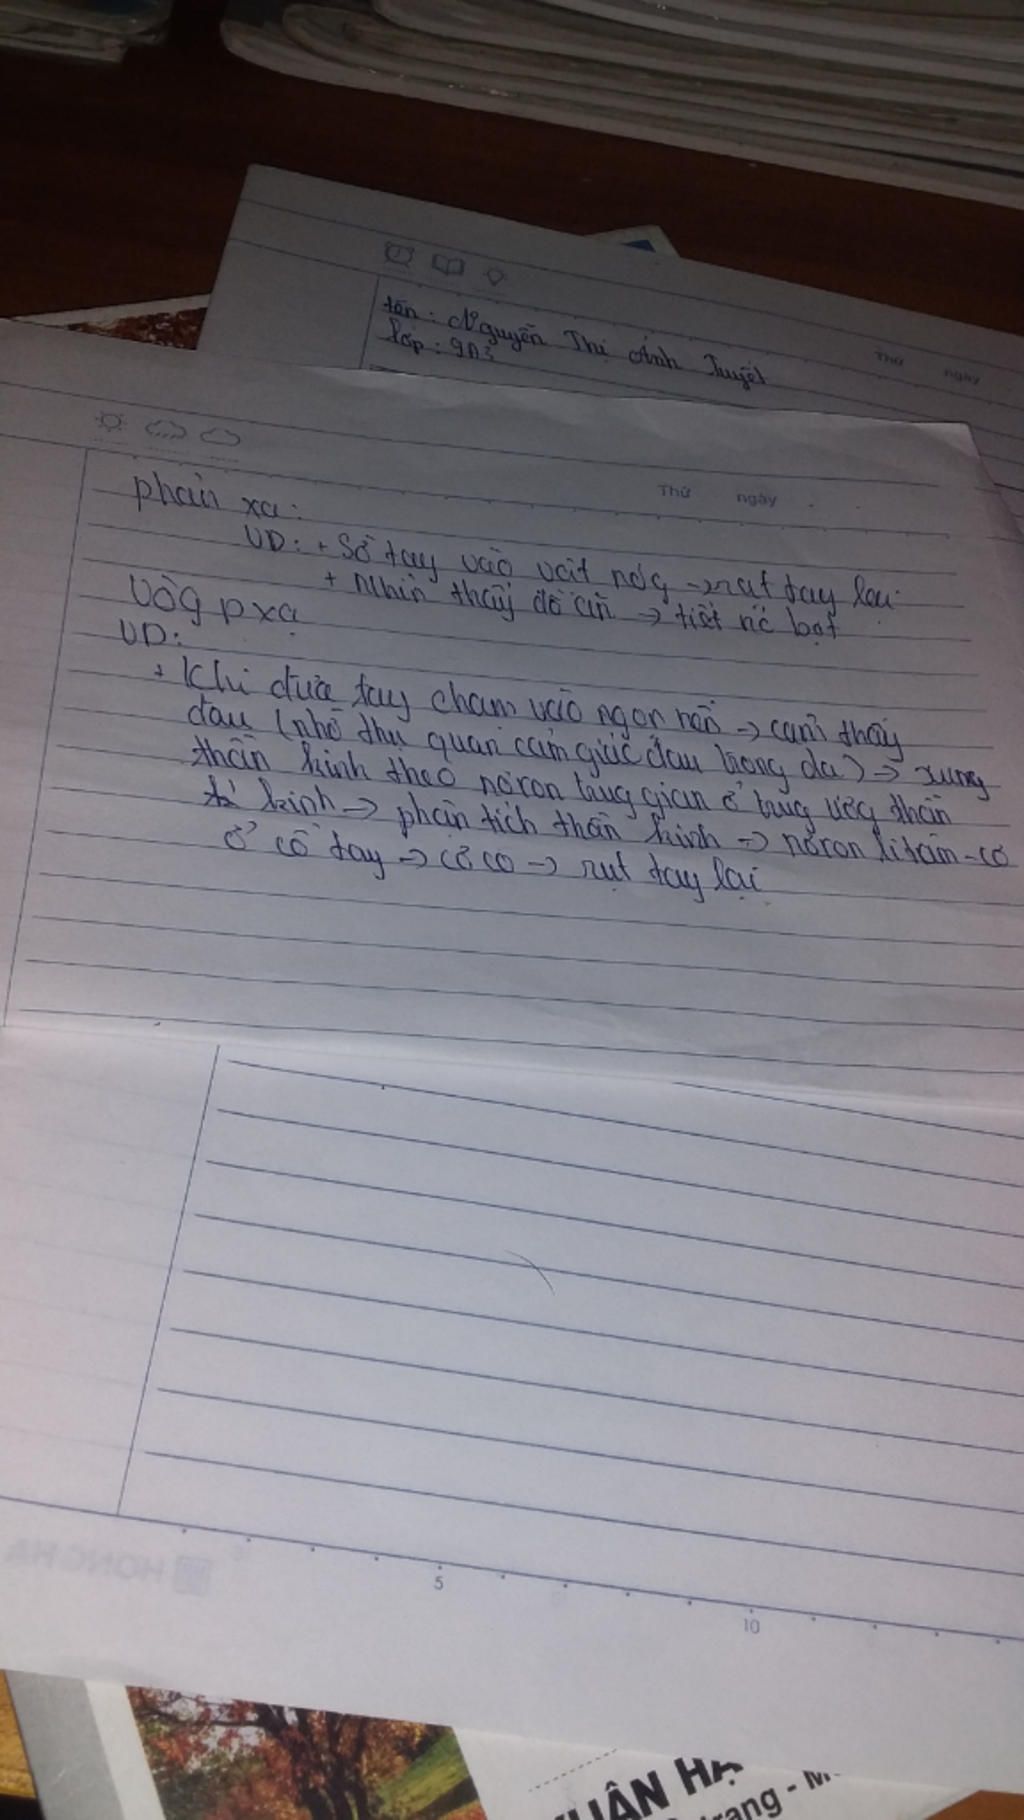 tên: Nguyễn Thị Ánh Tuyết
lớp: 9A3
Thứ ngày
Thứ ngày
phản xạ:
VD: + Sờ tay vào vật nóg → rut tay lại
+ Nhìn thấy đồ ăn → tiết nc bọt
Vòg pxạ
VD:
+ Khi đưa tay chạm vào ngọn nến → cảm thấy
đau (nhờ thụ quan cảm giác đau trong da) → xung
thần kinh theo nơron trung gian ở trung ươg thần
kinh → phân tích thần kinh → nơron li tâm - cơ
ở cổ tay → cơ co → rụt tay lại
HONG HA
5
10
UÂN HẠ
rang - M